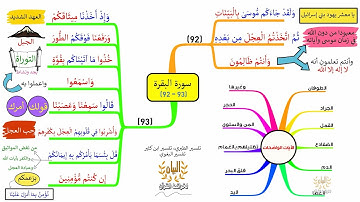 يا معشر يهود بني إسرائيل
وَلَقَدْ جَاءَكُم مُّوسَىٰ بِالْبَيِّنَاتِ
ثُمَّ اتَّخَذْتُمُ الْعِجْلَ مِن بَعْدِهِ
معبودا من دون الله
وَأَنتُمْ ظَالِمُونَ
وأنتم تعلمون أنه
لا إله إلا الله
(92)
سورة البقرة
(92 – 93)
(93)
وَإِذْ أَخَذْنَا مِيثَاقَكُمْ
العهد الشديد
وَرَفَعْنَا فَوْقَكُمُ الطُّورَ
الجبل
خُذُوا مَا آتَيْنَاكُم بِقُوَّةٍ
التوراة
وَاسْمَعُوا
واعملوا به
قَالُوا سَمِعْنَا وَعَصَيْنَا
قولك
أمرك
وَأُشْرِبُوا فِي قُلُوبِهِمُ الْعِجْلَ بِكُفْرِهِمْ
حب العجل
قُلْ بِئْسَمَا يَأْمُرُكُم بِهِ إِيمَانُكُمْ
من نقض المواثيق
والكفر بآيات الله
إِن كُنتُم مُّؤْمِنِينَ
بزعمكم
تفسير الطبري، تفسير ابن كثير
تفسير البغوي
الآيات الواضحات
الطوفان
الجراد
القمل
الضفادع
الدم
العصا
اليد
فلق البحر
تظليلهم بالغمام
المن والسلوى
الحجر
وغيرها